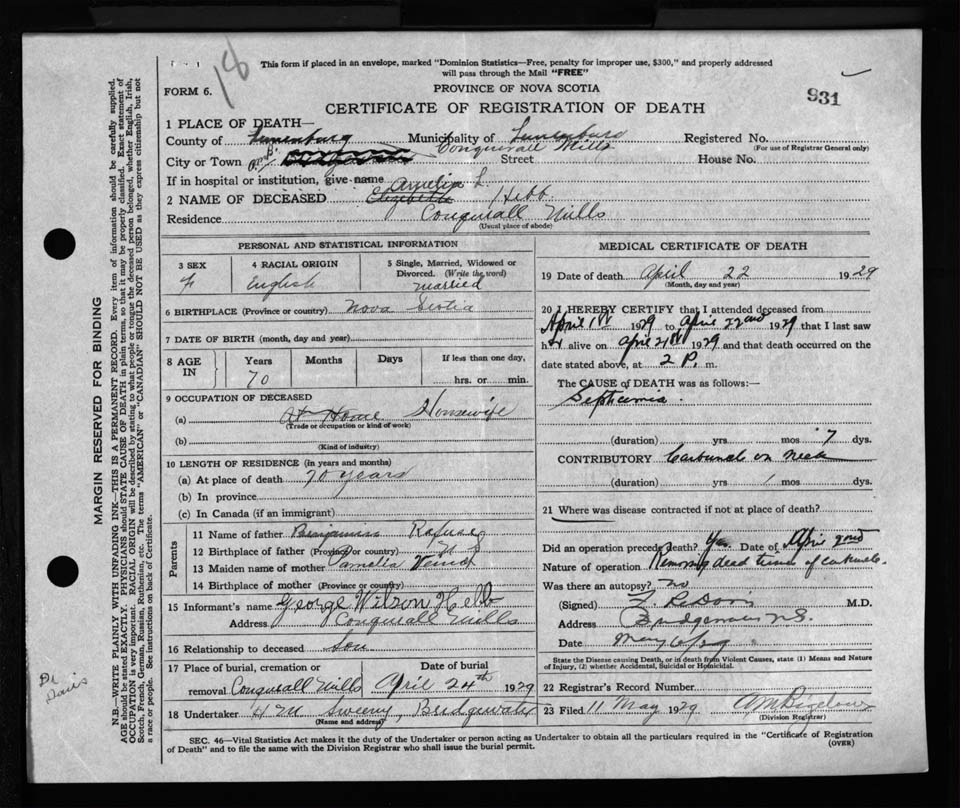 18
This form if placed in an envelope, marked "Dominion Statistics—Free, penalty for improper use, $300," and properly addressed
will pass through the Mail "FREE"
FORM 6.
PROVINCE OF NOVA SCOTIA
931
CERTIFICATE OF REGISTRATION OF DEATH
1 PLACE OF DEATH—
County of Lunenburg Municipality of Lunenburg Registered No.
(For use of Registrar General only)
City or Town Conquerall Mills Street House No.
If in hospital or institution, give name
2 NAME OF DECEASED Elizabeth Amelia L Hebb
Residence Conquerall Mills
(Usual place of abode)
PERSONAL AND STATISTICAL INFORMATION
3 SEX
F
4 RACIAL ORIGIN
English
5 Single, Married, Widowed or
Divorced. (Write the word)
married
6 BIRTHPLACE (Province or country) Nova Scotia
7 DATE OF BIRTH (month, day and year)
8 AGE
IN
Years
70
Months
Days
If less than one day,
hrs. or min.
9 OCCUPATION OF DECEASED
(a) At Home Housewife
(Trade or occupation or kind of work)
(b)
(Kind of industry)
10 LENGTH OF RESIDENCE (in years and months)
(a) At place of death 70 years
(b) In province
(c) In Canada (if an immigrant)
Parents
11 Name of father Benjamin Rafuse
12 Birthplace of father (Province or country) N S
13 Maiden name of mother Pamelia
14 Birthplace of mother (Province or country)
15 Informant's name George Wilson Hebb
Address Conquerall Mills
16 Relationship to deceased Son
17 Place of burial, cremation or
removal Conquerall Mills
Date of burial
April 24th 1929
18 Undertaker Sweeny, Bridgewater
(Name and address)
MEDICAL CERTIFICATE OF DEATH
19 Date of death April 22 1929
(Month, day and year)
20 I HEREBY CERTIFY that I attended deceased from
April 1929 to April 22nd 1929 that I last saw
her alive on April 21st 1929 and that death occurred on the
date stated above, at 2 P. m.
The CAUSE of DEATH was as follows:—
Septicemia.
(duration) yrs mos 7 dys.
CONTRIBUTORY Carbuncle on neck
(duration) yrs mos dys.
21 Where was disease contracted if not at place of death?
Did an operation precede death? Yes Date of April
Nature of operation Removing dead tissue of carbuncle.
Was there an autopsy? No
(Signed) Davis M.D.
Address Bridgewater N.S.
Date May 6/29
State the Disease causing Death, or in death from Violent Causes, state (1) Means and Nature
of Injury, (2) whether Accidental, Suicidal or Homicidal.
22 Registrar's Record Number
23 Filed 11 May 1929 A M Bigelow
(Division Registrar)
SEC. 46—Vital Statistics Act makes it the duty of the Undertaker or person acting as Undertaker to obtain all the particulars required in the "Certificate of Registration
of Death" and to file the same with the Division Registrar who shall issue the burial permit.
(OVER)
MARGIN RESERVED FOR BINDING
N.B.—WRITE PLAINLY WITH UNFADING INK—THIS IS A PERMANENT RECORD. Every item of information should be carefully supplied.
AGE should be stated EXACTLY. PHYSICIANS should STATE CAUSE OF DEATH in plain terms, so that it may be properly classified. Exact statement of
OCCUPATION is very important. RACIAL ORIGIN will be described by stating to what people or tongue the deceased person belonged, whether English, Irish,
Scotch, French, German, Russian, Ruthenian, etc. The terms "AMERICAN" or "CANADIAN" SHOULD NOT BE USED as they express citizenship but not
a race or people. See instructions on back of Certificate.
Dr
Davis